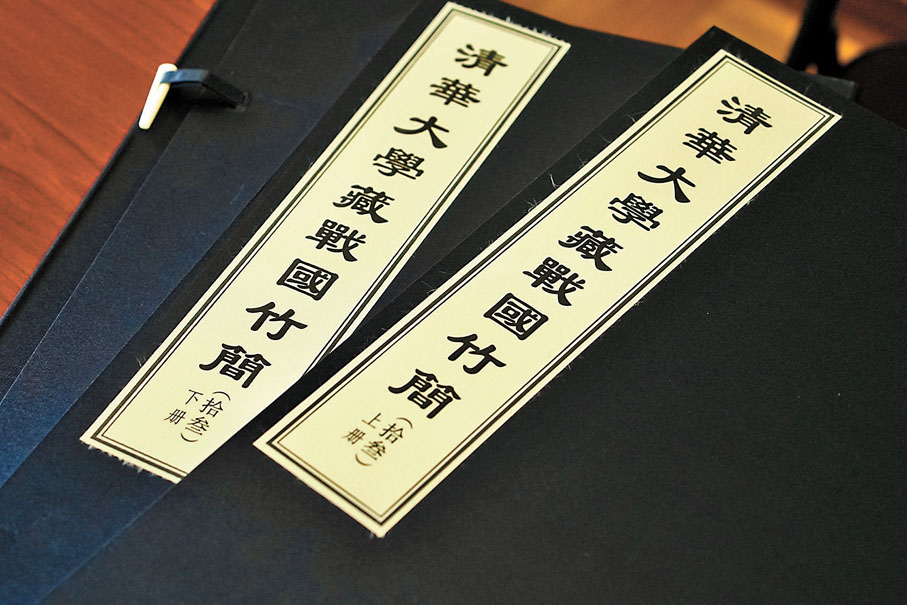 清華大學藏戰國竹簡
（拾叁）
下册
清華大學藏戰國竹簡
（拾叁）
上册